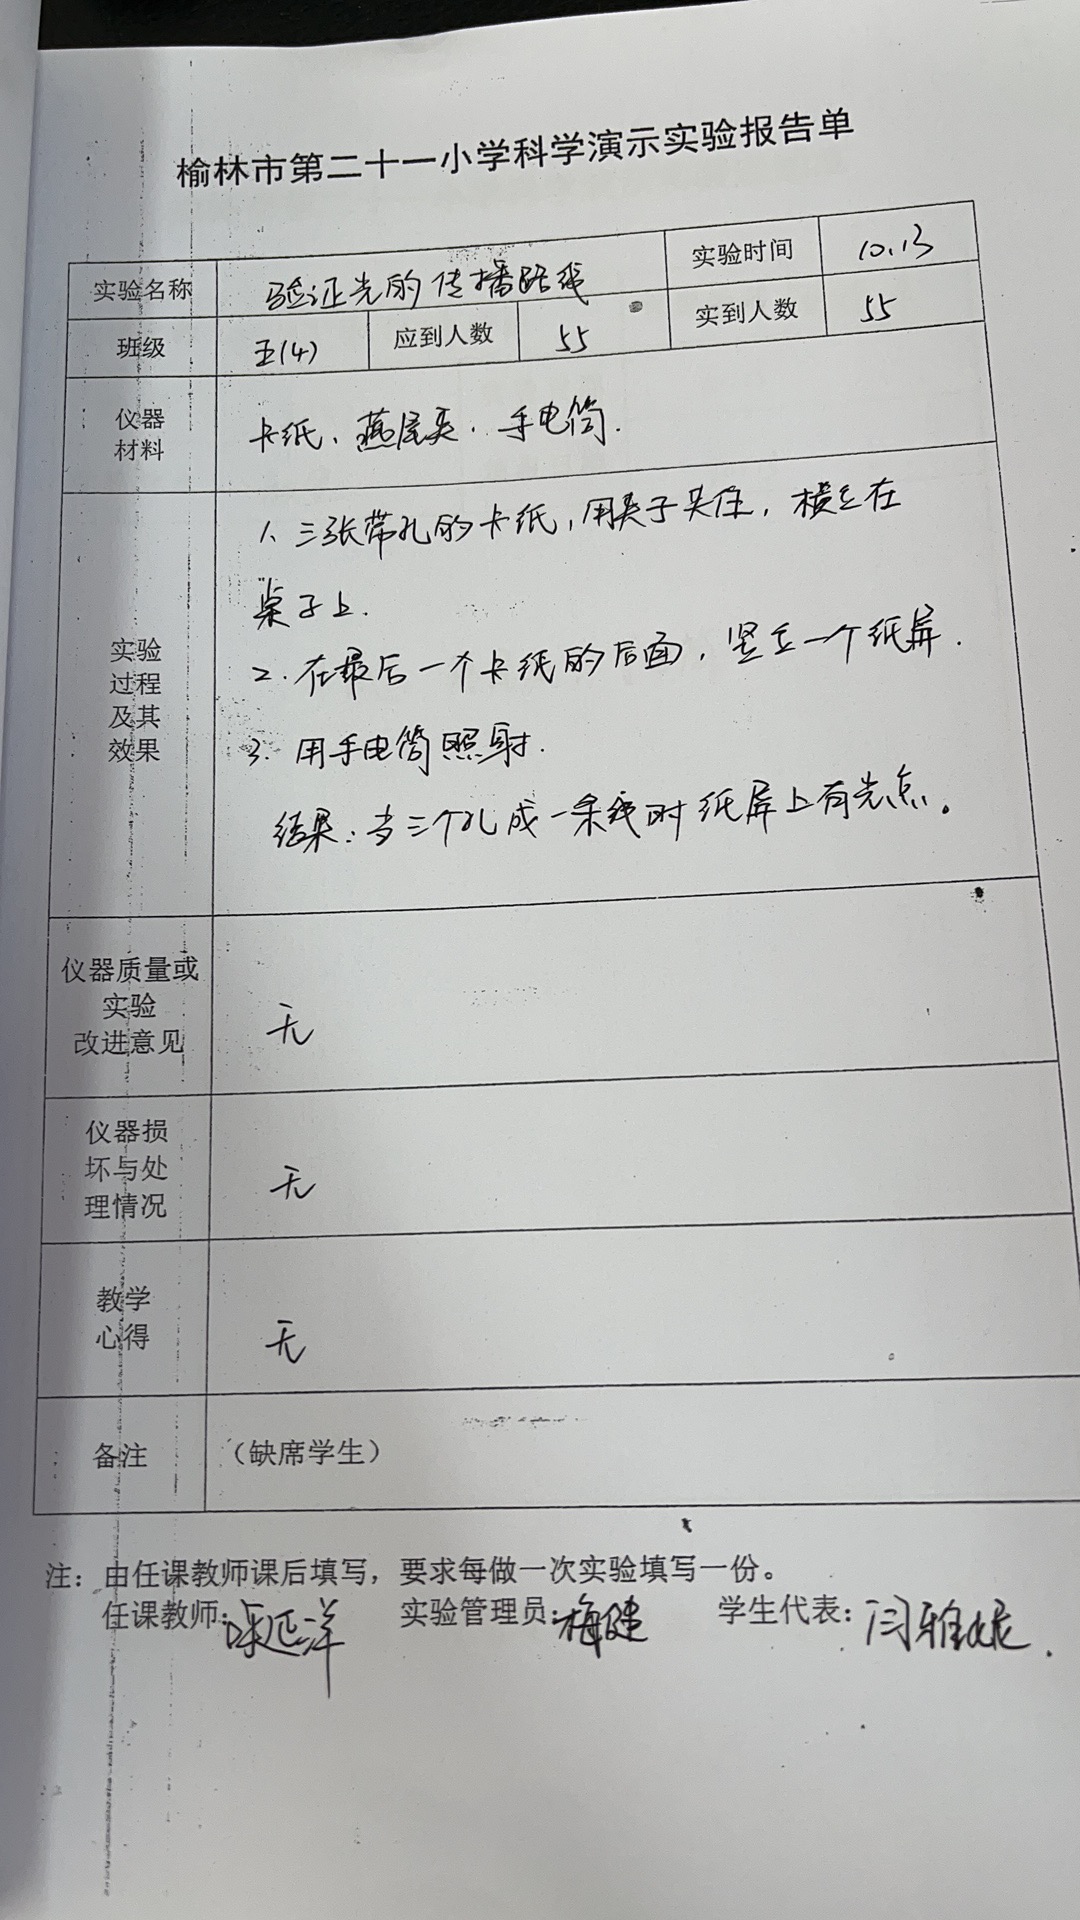 榆林市第二十一小学科学演示实验报告单
实验名称 验证光的传播路线 实验时间 10.13
班级 五(4) 应到人数 55 实到人数 55
仪器
材料
卡纸、燕尾夹、手电筒.
实验
过程
及其
效果
1、三张带孔的卡纸,用夹子夹住,横立在
桌子上.
2.在最后一个卡纸的后面,竖立一个纸屏.
3.用手电筒照射.
结果:当三个孔成一条线时纸屏上有光点。
仪器质量或
实验
改进意见
无
仪器损
坏与处
理情况
无
教学
心得
无
备注 (缺席学生)
注:由任课教师课后填写,要求每做一次实验填写一份。
任课教师: 实验管理员:梅健 学生代表:闫雅妮.